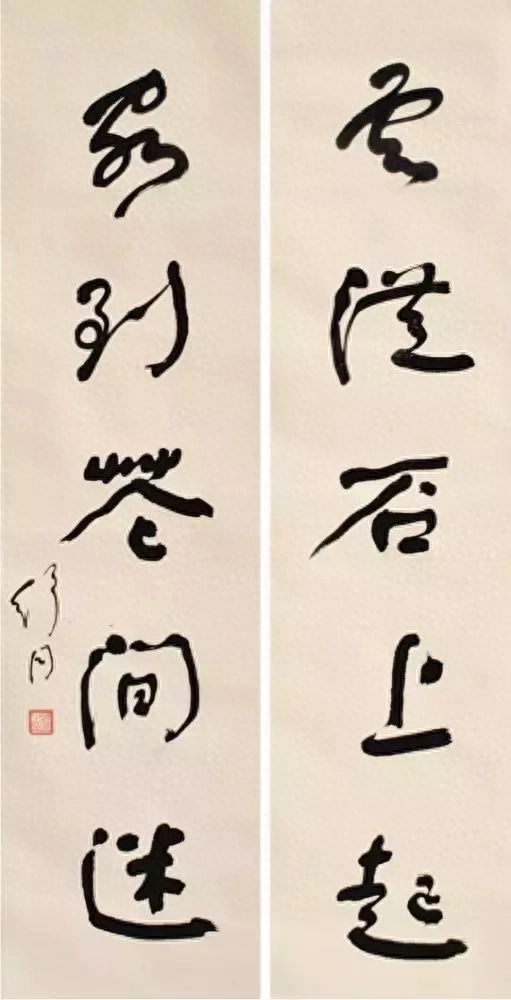 雲從石上起
客到花間迷
舒同